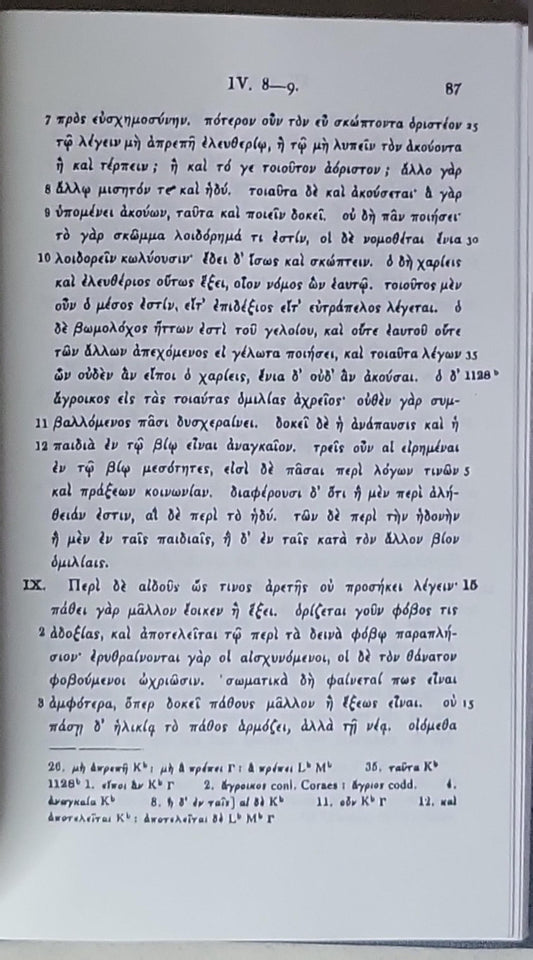 IV. 8—9. 87
7 πρὸς εὐσχημοσύνην. πότερον οὖν τὸν εὖ σκώπτοντα ὁριστέον 25
τῷ λέγειν μὴ ἀπρεπῆ ἐλευθερίῳ, ἢ τῷ μὴ λυπεῖν τὸν ἀκούοντα
ἢ καὶ τέρπειν; ἢ καὶ τό γε τοιοῦτον ἀόριστον; ἄλλο γὰρ
8 ἄλλῳ μισητόν τε καὶ ἡδύ. τοιαῦτα δὲ καὶ ἀκούσεται· ἃ γὰρ
9 ὑπομένει ἀκούων, ταῦτα καὶ ποιεῖν δοκεῖ. οὐ δὴ πᾶν ποιήσει·
τὸ γὰρ σκῶμμα λοιδόρημά τι ἐστίν, οἱ δὲ νομοθέται ἔνια 30
10 λοιδορεῖν κωλύουσιν· ἔδει δ' ἴσως καὶ σκώπτειν. ὁ δὴ χαρίεις
καὶ ἐλευθέριος οὕτως ἕξει, οἷον νόμος ὢν ἑαυτῷ. τοιοῦτος μὲν
οὖν ὁ μέσος ἐστίν, εἴτ' ἐπιδέξιος εἴτ' εὐτράπελος λέγεται. ὁ
δὲ βωμολόχος ἥττων ἐστὶ τοῦ γελοίου, καὶ οὔτε ἑαυτοῦ οὔτε
τῶν ἄλλων ἀπεχόμενος εἰ γέλωτα ποιήσει, καὶ τοιαῦτα λέγων 35
ὧν οὐδὲν ἂν εἴποι ὁ χαρίεις, ἔνια δ' οὐδ' ἂν ἀκούσαι. ὁ δ' 1128ᵇ
ἄγροικος εἰς τὰς τοιαύτας ὁμιλίας ἀχρεῖος· οὐθὲν γὰρ συμ-
11 βαλλόμενος πᾶσι δυσχεραίνει. δοκεῖ δὲ ἡ ἀνάπαυσις καὶ ἡ
12 παιδιὰ ἐν τῷ βίῳ εἶναι ἀναγκαῖον. τρεῖς οὖν αἱ εἰρημέναι
ἐν τῷ βίῳ μεσότητες, εἰσὶ δὲ πᾶσαι περὶ λόγων τινῶν 5
καὶ πράξεων κοινωνίαν. διαφέρουσι δ' ὅτι ἣ μὲν περὶ ἀλή-
θειάν ἐστιν, αἳ δὲ περὶ τὸ ἡδύ. τῶν δὲ περὶ τὴν ἡδονὴν
ἣ μὲν ἐν ταῖς παιδιαῖς, ἣ δ' ἐν ταῖς κατὰ τὸν ἄλλον βίον
ὁμιλίαις.
IX. Περὶ δὲ αἰδοῦς ὥς τινος ἀρετῆς οὐ προσήκει λέγειν· 10
πάθει γὰρ μᾶλλον ἔοικεν ἢ ἕξει. ὁρίζεται γοῦν φόβος τις
2 ἀδοξίας, καὶ ἀποτελεῖται τῷ περὶ τὰ δεινὰ φόβῳ παραπλή-
σιον· ἐρυθραίνονται γὰρ οἱ αἰσχυνόμενοι, οἱ δὲ τὸν θάνατον
φοβούμενοι ὠχριῶσιν. σωματικὰ δὴ φαίνεταί πως εἶναι
3 ἀμφότερα, ὅπερ δοκεῖ πάθους μᾶλλον ἢ ἕξεως εἶναι. οὐ 15
πάσῃ δ' ἡλικίᾳ τὸ πάθος ἁρμόζει, ἀλλὰ τῇ νέᾳ. οἰόμεθα
26. μὴ ἀπρεπῆ Kᵇ: μὴ ἃ πρέπει Γ: ἃ πρέπει Lᵇ Mᵇ 35. ταῦτα Kᵇ
1128ᵇ 1. εἴποι ἂν Kᵇ Γ 2. ἄγροικος coni. Coraes: ἄγριος codd. 4.
ἀναγκαία Kᵇ 8. ἣ δ' ἐν ταῖς] αἱ δὲ Kᵇ 11. οὖν Kᵇ Γ 12. καὶ
ἀποτελεῖται Kᵇ: ἀποτελεῖται δὲ Lᵇ Mᵇ Γ